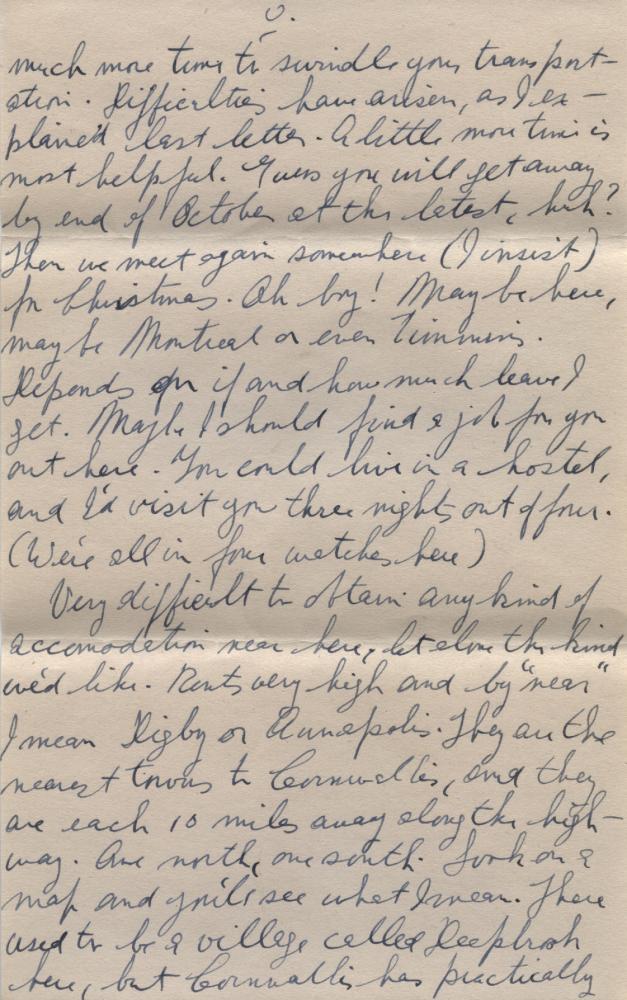 much more time to swindle your transport-
ation. Difficulties have arisen, as I ex-
plained last letter. A little more time is
most helpful. Guess you will get away
by end of October at the latest, huh?
Then we meet again somewhere (I insist)
for Christmas. Oh boy! Maybe here,
maybe Montreal or even Timmins.
Depends on if and how much leave I
get. Maybe I should find a job for you
out here. You could live in a hostel,
and I'd visit you three nights out of four.
(We're all in four watches here)
Very difficult to obtain any kind of
accomodation near here, let alone the kind
we'd like. Rents very high and by "near"
I mean Digby or Annapolis. They are the
nearest towns to Cornwallis, and they
are each 10 miles away along the high-
way. One north, one south. Look on a
map and you'll see what I mean. There
used to be a village called Deepbrook
here, but Cornwallis has practically